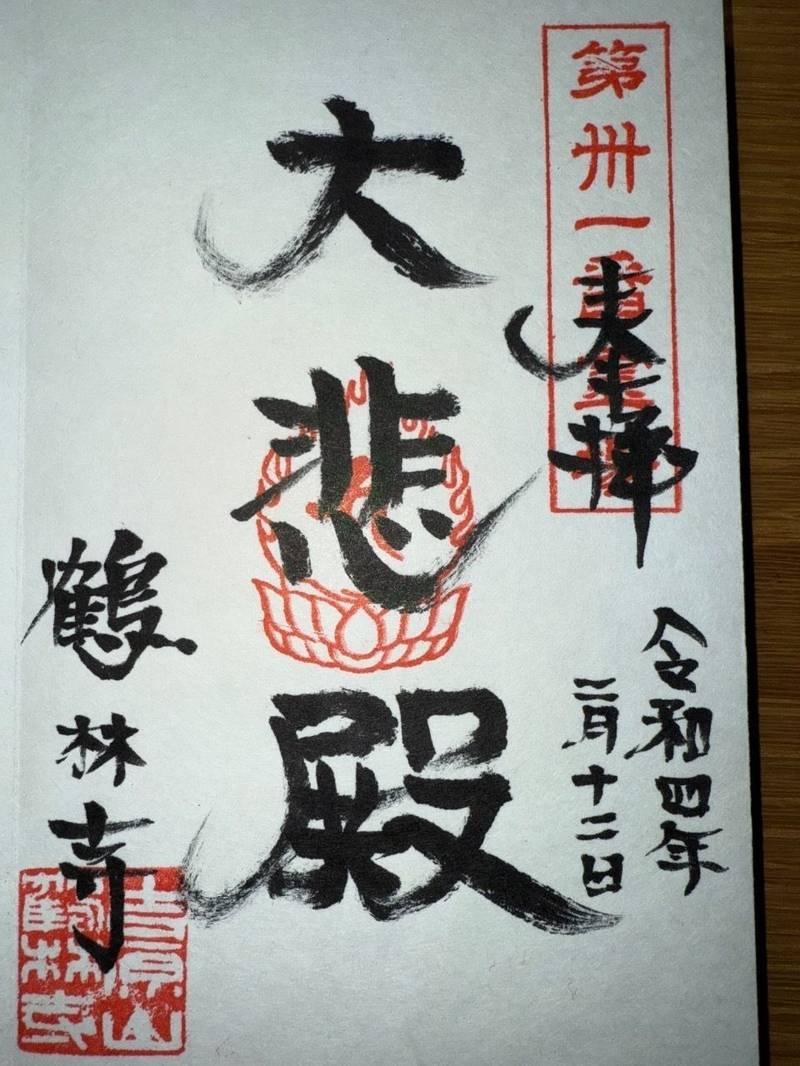 第卅一番霊場
奉拝
令和四年
二月十二日
大悲殿
鶴林寺
吉原山
鶴林寺